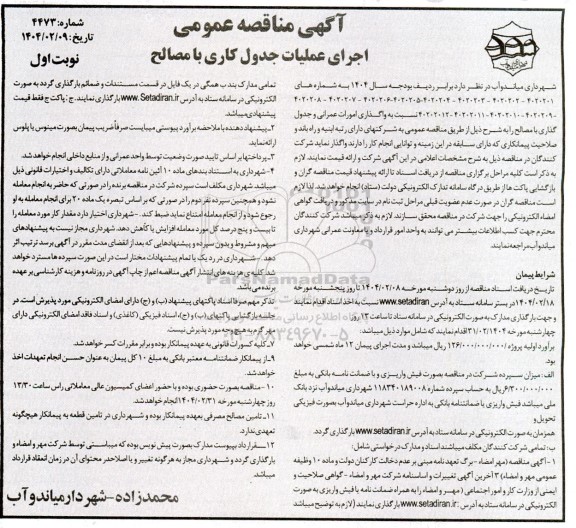 آگهی مناقصه عمومی
اجرای عملیات جدول کاری با مصالح
شماره: ۴۴۷۳
تاریخ: ۱۴۰۴/۰۲/۰۹
نوبت اول
شهرداری میاندوآب در نظر دارد برابر ردیف بودجه سال ۱۴۰۴ به شماره های
۴۰۲۰۲۰۱ - ۴۰۲۰۲۰۲ - ۴۰۲۰۲۰۳ - ۴۰۲۰۲۰۴ - ۴۰۲۰۲۰۵ - ۴۰۲۰۲۰۶ - ۴۰۲۰۲۰۷ - ۴۰۲۰۲۰۸ -
۴۰۲۰۲۰۹ - ۴۰۲۰۲۱۰ - ۴۰۲۰۲۱۱ - ۴۰۲۰۲۱۲ نسبت به واگذاری امورات عمرانی و جدول
گذاری با مصالح را به شرح ذیل از طریق مناقصه عمومی به شرکتهای دارای رتبه ابنیه و راه باند و
صلاحیت پیمانکاری که دارای سابقه در این زمینه و توانایی انجام کار را دارند، واگذار نماید شرکت
کنندگان در مناقصه ذیل به شرح مشخصات اعلامی در این آگهی شرکت و ارائه قیمت نمایند. لازم
به ذکر است کلیه مراحل برگزاری مناقصه از دریافت اسناد تا ارائه پیشنهاد قیمت مناقصه گران و
بازگشایی پاکت ها از طریق درگاه سامانه تدارک الکترونیکی دولت (ستاد) انجام خواهد شد لذا لازم
است مناقصه گران در صورت عدم عضویت قبلی مراحل ثبت نام در سایت مذکور و دریافت گواهی
امضاء الکترونیکی را جهت شرکت در مناقصه محقق سازند. لازم به ذکر می باشد شرکت کنندگان
محترم جهت کسب اطلاعات بیشتر می توانند به واحد امور قرارداد یا معاونت عمرانی شهرداری
میاندوآب مراجعه نمایند.
شرایط پیمان
تاریخ دریافت اسناد مناقصه از روز دوشنبه مورخه ۱۴۰۴/۰۲/۰۸ تا روز پنجشنبه مورخه
۱۴۰۴/۰۲/۱۸ در بستر سامانه ستاد به آدرس www.setadiran.ir نسبت به اخذ اسناد اقدام نمایند
و جهت بارگذاری مدارک به صورت الکترونیکی در سامانه ستاد تا ساعت ۱۳ روز
چهارشنبه مورخه ۱۴۰۴/۰۲/۳۱ اقدام نمایند که شامل موارد ذیل میباشد:
برآورد اولیه پروژه ۱۲۶/۰۰۰/۰۰۰/۰۰۰ ریال میباشد و مدت اجرای پیمان ۱۲ ماه شمسی خواهد
بود.
الف: میزان سپرده شرکت در مناقصه بصورت فیش واریزی و با ضمانت نامه بانکی به مبلغ
۶/۳۰۰/۰۰۰/۰۰۰ ریال به حساب سپرده شماره ۱۱۸۳۴۰۱۸۹۰۰۸ شهرداری میاندوآب نزد بانک
ملی میباشد فیش واریزی یا ضمانتنامه بانکی به اداره حراست شهرداری میاندوآب بصورت فیزیکی
تحویل و
همزمان به صورت الکترونیکی در سامانه ستاد به آدرس www.setadiran.ir بارگذاری گردد.
ب: تمامی شرکت کنندگان مکلف میباشند اسناد و مدارک درخواستی شامل:
۱- آگهی مناقصه (مهر امضاء - برگ تعهد نامه مبنی بر عدم دخالت کارکنان دولت و ماده ۱۰ وظیفه
عمومی مهر و امضاء) ۲ آخرین آگهی تغییرات و اساسنامه شرکت مهر و امضاء - گواهی صلاحیت و
ایمنی از وزارت کار و امور اجتماعی (مهر و امضاء را به همراه ضمانت نامه یا فیش واریزی به صورت
الکترونیکی در سامانه ستاد به آدرس www.setadiran.ir بارگذاری نمایند (لازم به توضیح میباشد
تمامی مدارک بند ب همگی در یک فایل در قسمت مستندات و ضمائم بارگذاری گردد به صورت
الکترونیکی در سامانه ستاد به آدرس www.Setadiran.ir بارگذاری نمایند. ج: پاکت ج فقط قیمت
پیشنهادی میباشد.
۲- پیشنهاد دهنده با ملاحظه برآورد پیوستی میبایست صرفاً ضریب پیمان بصورت مینوس یا پلوس
ارائه نماید.
۳- پرداختها بر اساس تایید صورت وضعیت توسط واحد عمرانی و از منابع داخلی انجام خواهد شد.
۴- شهرداری به استناد بندهای ماده ۱۰ آئین نامه معاملاتی دارای تکالیف و اختیارات قانونی ذیل
میباشد شهرداری مکلف است سپرده شرکت در مناقصه برنده را در صورتی که حاضر به انجام معامله
نشود و همچنین سپرده نفر دوم را در صورتی که بر اساس تبصره یک ماده ۲۰ برای انجام معامله به او
رجوع شود و از انجام معامله امتناع نماید ضبط کند. - شهرداری اختیار دارد مقدار کار مورد معامله را
تا بیست و پنج درصد کل مورد معامله افزایش یا کاهش دهد. شهرداری مجاز نیست به پیشنهادهای
مبهم و مشروط و بدون سپرده و پیشنهادهایی که بعد از انقضای مدت مقرر در آگهی برسد ترتیب اثر
دهد. - شهرداری در رد یک یا تمام پیشنهادات مختار است در این صورت سپرده ها مسترد خواهد
شد. کلیه ی هزینه های انتشار آگهی مناقصه اعم از چاپ آگهی در روزنامه و هزینه کارشناسی بر عهده
برنده می باشد.
تذکر مهم صرفاً اسناد پاکتهای پیشنهاد (ب) و (ج) دارای امضای الکترونیکی مورد پذیرش است. در
جلسه بازگشایی پاکتهای (ب) و (ج)، اسناد فیزیکی (کاغذی) و اسناد فاقد امضای الکترونیکی دارای
مهر گرم به هیچ وجه مورد پذیرش نیست.
۸- کلیه کسورات قانونی به عهده پیمانکار بوده و برابر مقررات کسر خواهد شد.
۹- از پیمانکار ضمانتنامه معتبر بانکی به مبلغ ۱۰ کل پیمان به عنوان حسن انجام تعهدات اخذ
خواهد شد.
۱۰- مناقصه بصورت حضوری بوده و با حضور اعضای کمیسیون عالی معاملاتی راس ساعت ۱۳/۳۰
روز چهارشنبه مورخه ۱۴۰۴/۰۲/۳۱ انجام خواهد شد.
۱۱- تامین مصالح مصرفی بعهده پیمانکار بوده و شهرداری در تامین قطعه به پیمانکار هیچگونه
تعهدی ندارد.
۱۲- قرارداد بپیوست مدارک بصورت پیش نویس بوده که میبایستی توسط شرکت مهر و امضاء و
بارگذاری گردد و شهرداری مجاز به هرگونه تغییر و یا اصلاحدر محتوای آن در زمان انعقاد قرارداد
میباشد.
محمدزاده - شهردار میاندوآب
ParsNamadData
۰۲۱-۸۸۳۴۹۶۷۰-۵